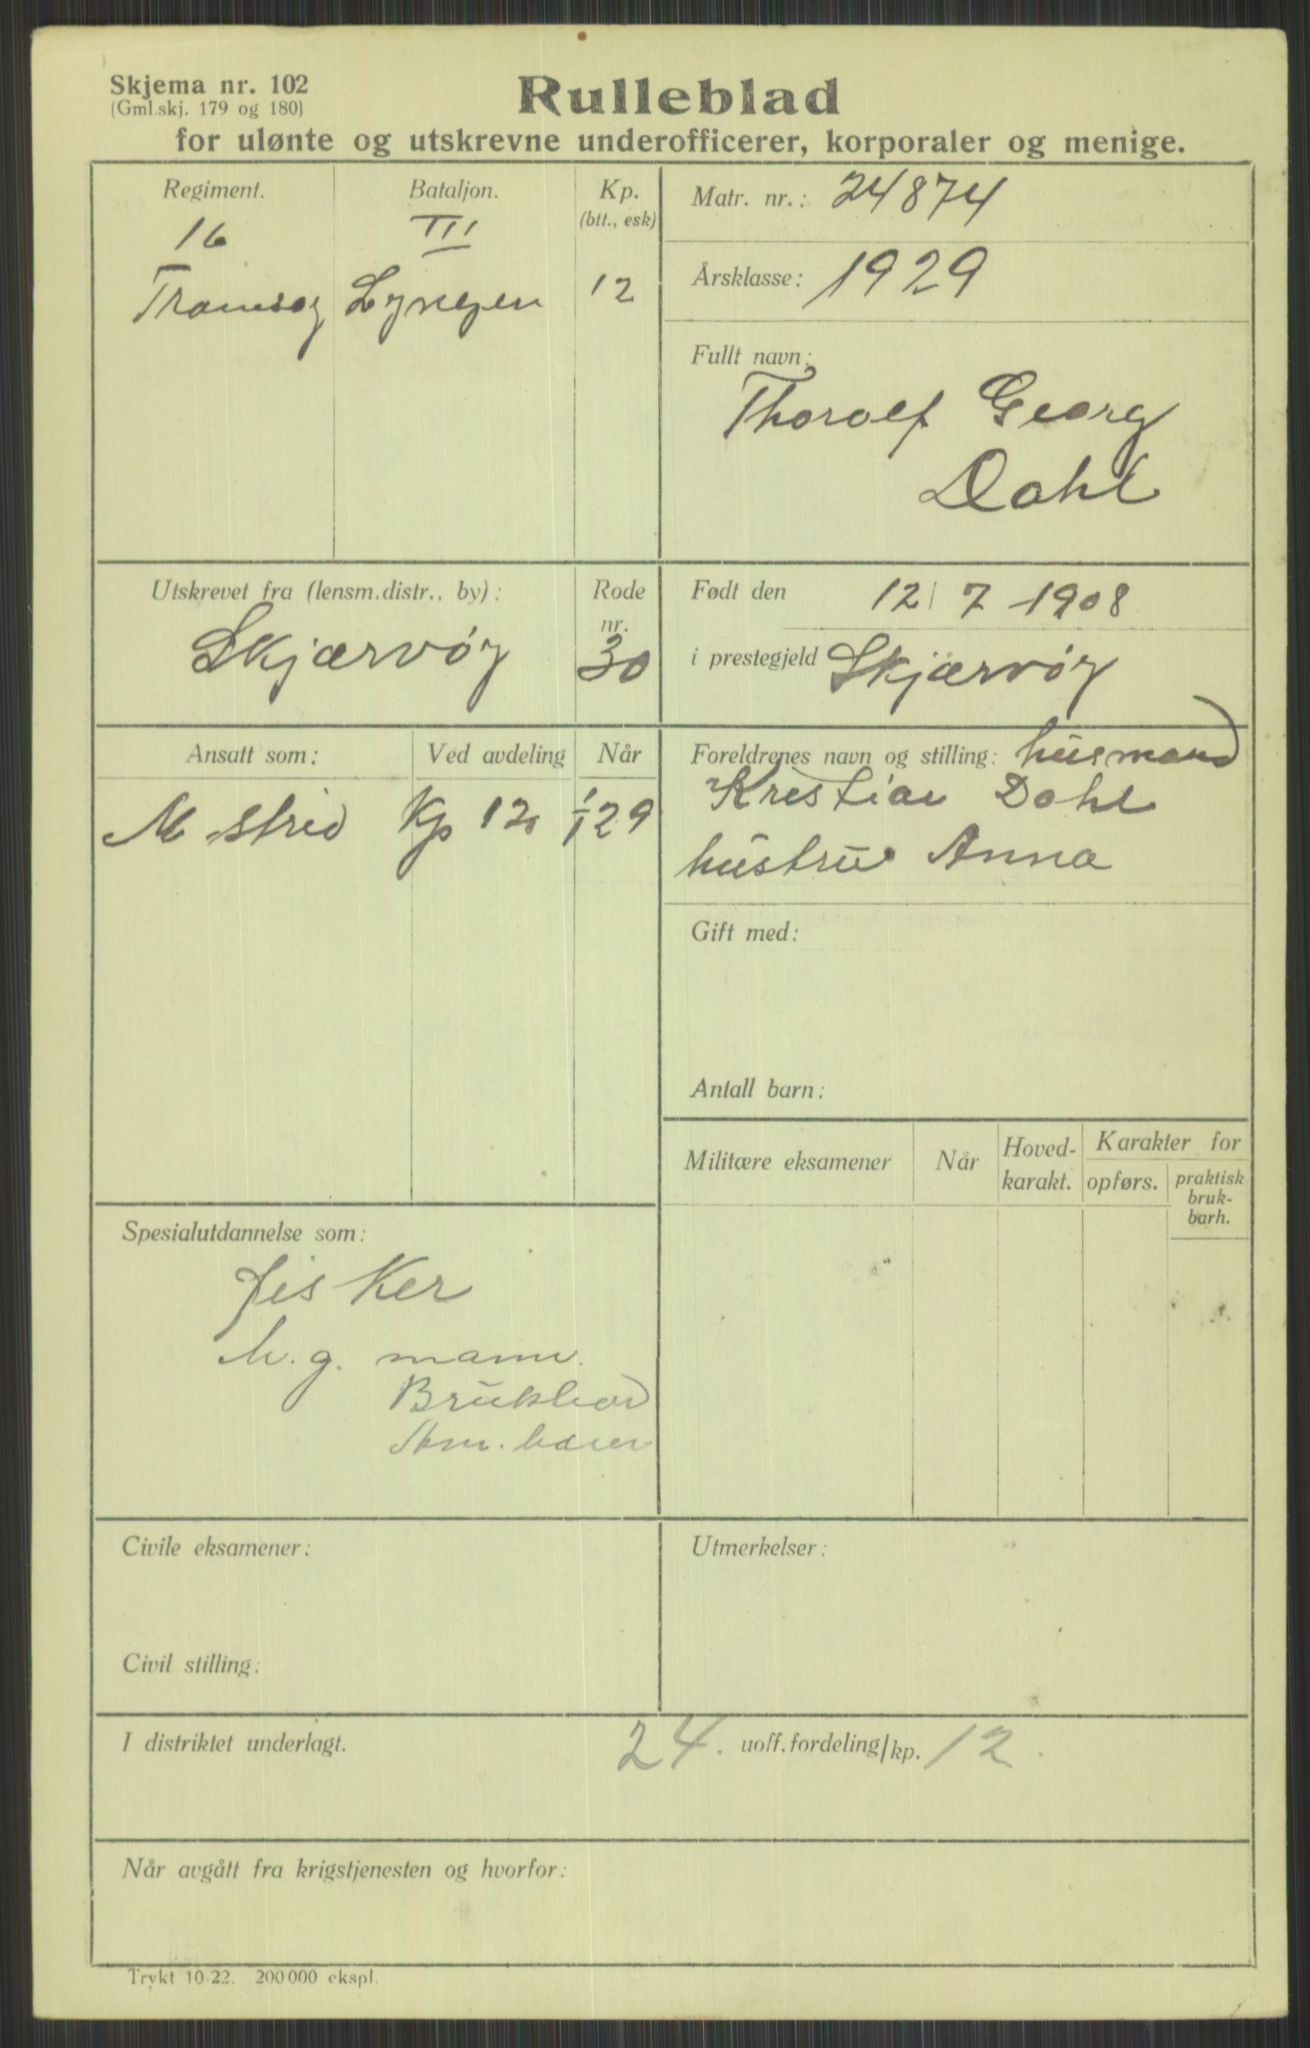 Skjema nr. 102
(Gml.skj. 179 og 180)
Rulleblad
for ulønte og utskrevne underofficerer, korporaler og menige.
Regiment. Bataljon. Kp.
(btt., esk)
16 III
Tromsøy Lyngen 12
Matr. nr.: 24874
Årsklasse: 1929
Fullt navn:
Thorolf Georg
Dahl
Utskrevet fra (lensm.distr., by): Rode
nr.
Skjærvøy 30
Født den 12/7-1908
i prestegjeld Skjærvøy
Ansatt som: Ved avdeling Når
M strid Kp 12 1/1 29
Foreldrenes navn og stilling: husmand
Kristian Dahl
hustru Anna
Gift med:
Antall barn:
Militære eksamener Når Hoved-
karakt. Karakter for
opførs. praktisk
bruk-
barh.
Spesialutdannelse som:
fisker
M. g. mann.
Brukbar
Am. bærer
Civile eksamener:
Utmerkelser:
Civil stilling:
I distriktet underlagt. 24. uoff.fordeling/kp. 12.
Når avgått fra krigstjenesten og hvorfor:
Trykt 10-22. 200 000 ekspl.